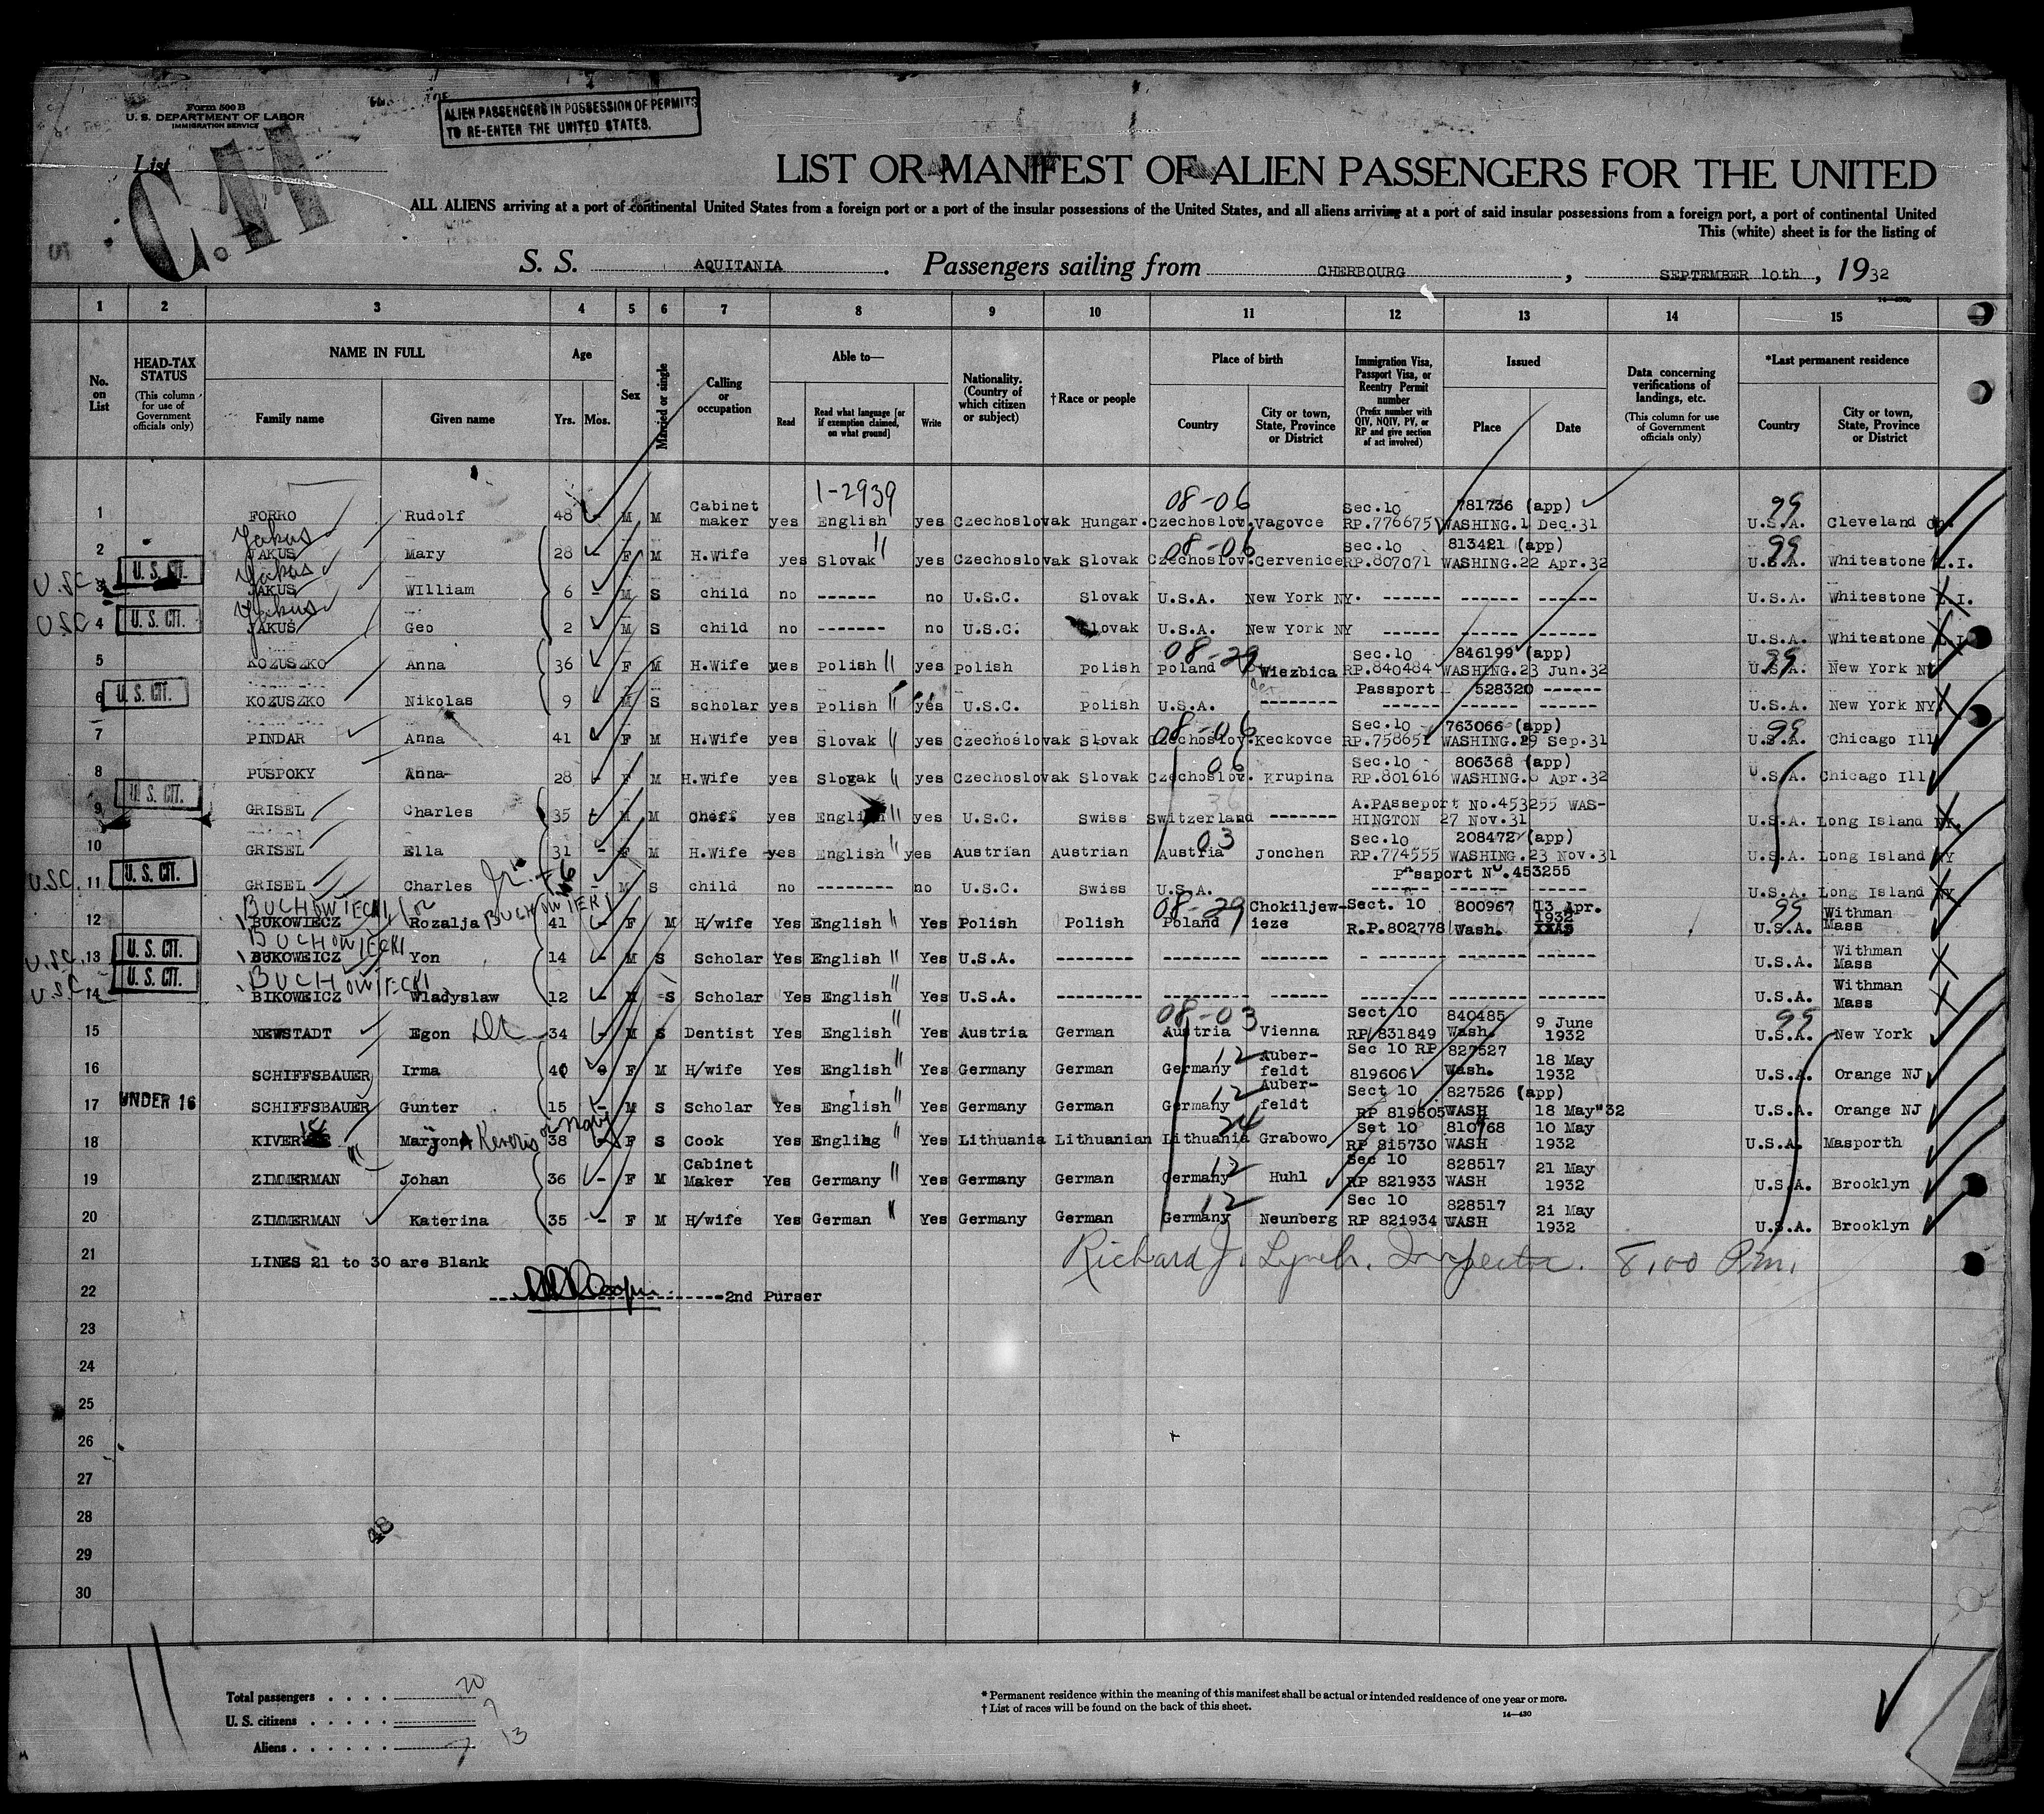 Form 500 B
U. S. DEPARTMENT OF LABOR
IMMIGRATION SERVICE
ALIEN PASSENGERS IN POSSESSION OF PERMITS
TO RE-ENTER THE UNITED STATES.
List
C. 11
LIST OR MANIFEST OF ALIEN PASSENGERS FOR THE UNITED
ALL ALIENS arriving at a port of continental United States from a foreign port or a port of the insular possessions of the United States, and all aliens arriving at a port of said insular possessions from a foreign port, a port of continental United
This (white) sheet is for the listing of
S. S. AQUITANIA. Passengers sailing from CHERBOURG, SEPTEMBER 10th, 1932
1 2 3 4 5 6 7 8 9 10 11 12 13 14 15
No. on List
HEAD-TAX STATUS
(This column for use of Government officials only)
NAME IN FULL
Family name Given name
Age
Yrs. Mos.
Sex
Married or single
Calling or occupation
Able to—
Read Read what language [or if exemption claimed, on what ground] Write
Nationality. (Country of which citizen or subject)
†Race or people
Place of birth
Country City or town, State, Province or District
Immigration Visa, Passport Visa, or Reentry Permit number
(Prefix number with QIV, NQIV, PV, or RP and give section of act involved)
Issued
Place Date
Data concerning verifications of landings, etc.
(This column for use of Government officials only)
*Last permanent residence
Country City or town, State, Province or District
1-2939 08-06 99
1 FORRO Rudolf 48 - M M Cabinet maker yes English yes Czechoslovak Hungar. Czechoslov. Vagovce Sec.10 RP.776675 781736 (app) WASHING.1 Dec.31 U.S.A. Cleveland Oh.
Yakus 08-06 99
2 JAKUS Mary 28 - F M H.Wife yes Slovak " yes Czechoslovak Slovak Czechoslov. Cervenice Sec.10 RP.807071 813421 (app) WASHING.22 Apr.32 U.S.A. Whitestone L.I.
Yakus
U.S.C. 3 U. S. CIT. JAKUS William 6 - M S child no ------ no U.S.C. Slovak U.S.A. New York NY. ------ ------ ------ U.S.A. Whitestone L.I.
Yakus
U.S.C. 4 U. S. CIT. JAKUS Geo 2 - M S child no ------- no U.S.C. Slovak U.S.A. New York NY ------ ------ ------ U.S.A. Whitestone L.I.
08-29 99
5 KOZUSZKO Anna 36 F M H.Wife yes Polish " yes Polish Polish Poland Wiezbica Sec.10 RP.840484 846199 (app) WASHING.23 Jun.32 U.S.A. New York NY
6 U. S. CIT. KOZUSZKO Nikolas 9 - M S scholar yes Polish " yes U.S.C. Polish U.S.A. -------- Passport 528320 ------ U.S.A. New York NY
08-06 99
7 PINDAR Anna 41 F M H.Wife yes Slovak " yes Czechoslovak Slovak Czechoslov. Keckovce Sec.10 RP.758651 763066 (app) WASHING.29 Sep.31 U.S.A. Chicago Ill
06
8 PUSPOKY Anna 28 - F M H.Wife yes Slovak " yes Czechoslovak Slovak Czechoslov. Krupina Sec.10 RP.801616 806368 (app) WASHING.6 Apr.32 U.S.A. Chicago Ill
9 U. S. CIT. GRISEL Charles 35 M M Cheff yes English " yes U.S.C. Swiss Switzerland ------- A.PAsseport No.453255 WAS-HINGTON 27 Nov.31 U.S.A. Long Island NY.
03
10 GRISEL Ella 31 - F M H.Wife yes English " yes Austrian Austrian Austria Jonchen Sec.10 RP.774555 208472 (app) WASHING.23 Nov.31 U.S.A. Long Island NY
U.S.C. 11 U. S. CIT. GRISEL Charles Jr. 6 - M S child no -------- no U.S.C. Swiss U.S.A. Passport No.453255 U.S.A. Long Island NY
BUCHOWIECKI or BUCHOWIECKI 08-29 99
12 BUKOWIECZ Rozalja 41 - F M H/wife Yes English " Yes Polish Polish Poland Chokiljew-ieze Sect. 10 R.P.802778 800967 Wash. 13 Apr. 1932 U.S.A. Withman Mass
BUCHOWIECKI
U.S.C. 13 U. S. CIT. BUKOWEICZ Yon 14 - M S Scholar Yes English " Yes U.S.A. -------- -------- ------ ------- ------- ------- U.S.A. Withman Mass
BUCHOWIECKI
U.S.C. 14 U. S. CIT. BIKOWEICZ Wladyslaw 12 - M S Scholar Yes English " Yes U.S.A. --------- -------- ------ ------- -------- ------- U.S.A. Withman Mass
08-03 99
15 NEWSTADT Egon 34 - M S Dentist Yes English " Yes Austria German Austria Vienna Sect 10 RP 831849 840485 Wash. 9 June 1932 U.S.A. New York
12
16 SCHIFFSBAUER Irma 40 F M H/wife Yes English " Yes Germany German Germany Auber-feldt Sec 10 RP 819606 827527 Wash. 18 May 1932 U.S.A. Orange NJ
12
17 UNDER 16 SCHIFFSBAUER Gunter 15 - M S Scholar Yes English " Yes Germany German Germany Auber-feldt Sect 10 RP 819605 827526 (app) WASH 18 May"32 U.S.A. Orange NJ
24
18 KIVER Maryona Keveris 38 - F S Cook Yes Englihg " Yes Lithuania Lithuanian Lithuania Grabowo Set 10 RP 815730 810768 WASH 10 May 1932 U.S.A. Masporth
12
19 ZIMMERMAN Johan 36 - F M Cabinet Maker Yes Germany " Yes Germany German Germany Huhl Sec 10 RP 821933 828517 WASH 21 May 1932 U.S.A. Brooklyn
12
20 ZIMMERMAN Katerina 35 - F M H/wife Yes German " Yes Germany German Germany Neunberg Sec 10 RP 821934 828517 WASH 21 May 1932 U.S.A. Brooklyn
21 LINES 21 to 30 are Blank Richard J. Lynch. Inspector. 8.00 P.m.
22 2nd Purser
23
24
25
26
27
28
29
30
48
Total passengers . . . . 20
U. S. citizens . . . . . 7
Aliens . . . . . . 13
* Permanent residence within the meaning of this manifest shall be actual or intended residence of one year or more.
† List of races will be found on the back of this sheet.
14—430